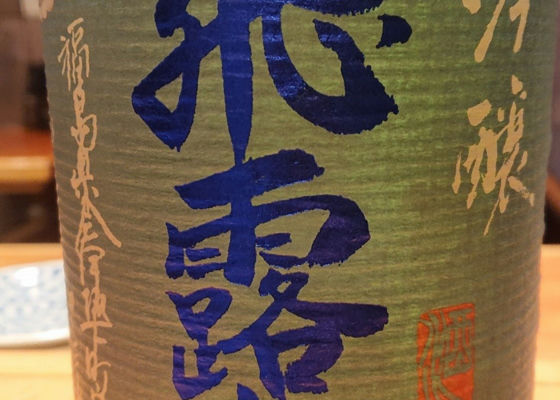 吟醸
飛露
福島県会津坂下町